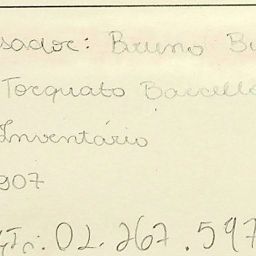 sador: Bruno Bu
Torquato Barcello
Inventário
907
GTc: 02.267.597